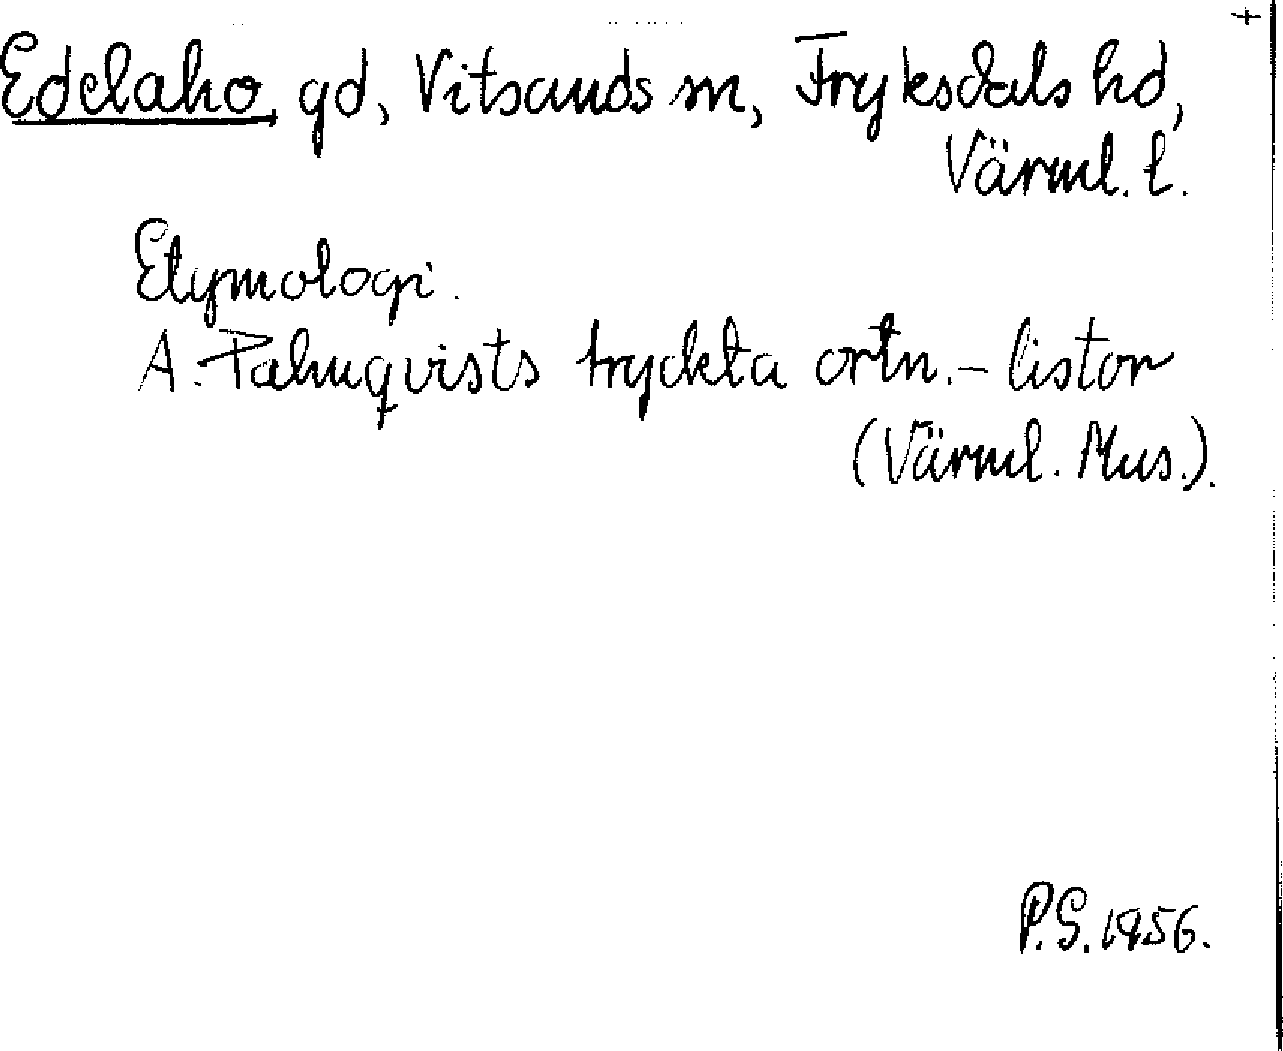 Edelaho, gd, Vitsands sn, Fryksdals hd,
Värml. l.
Etymologi.
A. Palmqvists tryckta ortn.-listor
(Värml. Mus.).
P.S. 1956.